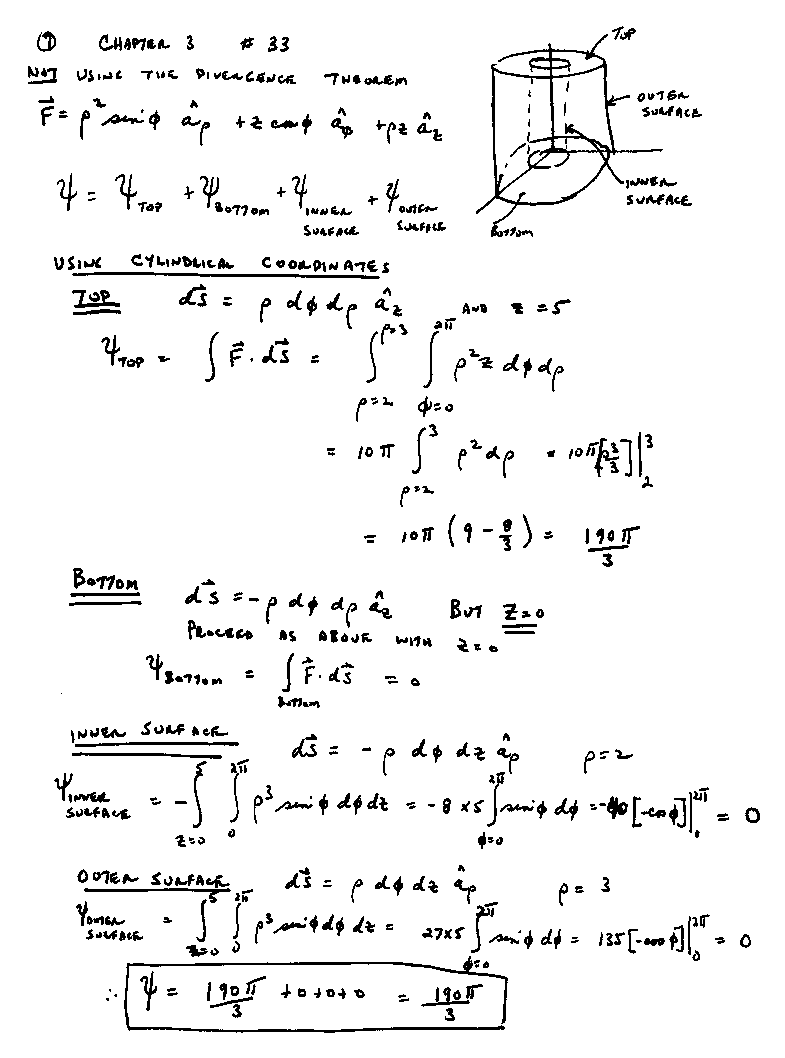 ① CHAPTER 3 # 33
NOT USING THE DIVERGENCE THEOREM
F⃗ = ρ² sin φ â_ρ + z cos φ â_φ + ρz â_z
Ψ = Ψ_TOP + Ψ_BOTTOM + Ψ_INNER SURFACE + Ψ_OUTER SURFACE
TOP
OUTER
SURFACE
INNER
SURFACE
BOTTOM
USING CYLINDRICAL COORDINATES
TOP ds⃗ = ρ dφ dρ â_z AND z = 5
Ψ_TOP = ∫ F⃗ · ds⃗ = ∫_{ρ=2}^{ρ=3} ∫_{φ=0}^{2π} ρ² z dφ dρ
= 10π ∫_{ρ=2}^{3} ρ² dρ = 10π [ρ³/3] |_2^3
= 10π (9 − 8/3) = 190π/3
BOTTOM ds⃗ = −ρ dφ dρ â_z BUT Z = 0
PROCEED AS ABOVE WITH z = 0
Ψ_BOTTOM = ∫_BOTTOM F⃗ · ds⃗ = 0
INNER SURFACE ds⃗ = −ρ dφ dz â_ρ ρ = 2
Ψ_INNER SURFACE = −∫_{z=0}^{5} ∫_0^{2π} ρ³ sin φ dφ dz = −8 × 5 ∫_{φ=0}^{2π} sin φ dφ = −40 [−cos φ] |_0^{2π} = 0
OUTER SURFACE ds⃗ = ρ dφ dz â_ρ ρ = 3
Ψ_OUTER SURFACE = ∫_{z=0}^{5} ∫_0^{2π} ρ³ sin φ dφ dz = 27×5 ∫_{φ=0}^{2π} sin φ dφ = 135 [−cos φ] |_0^{2π} = 0
∴ Ψ = 190π/3 + 0 + 0 + 0 = 190π/3